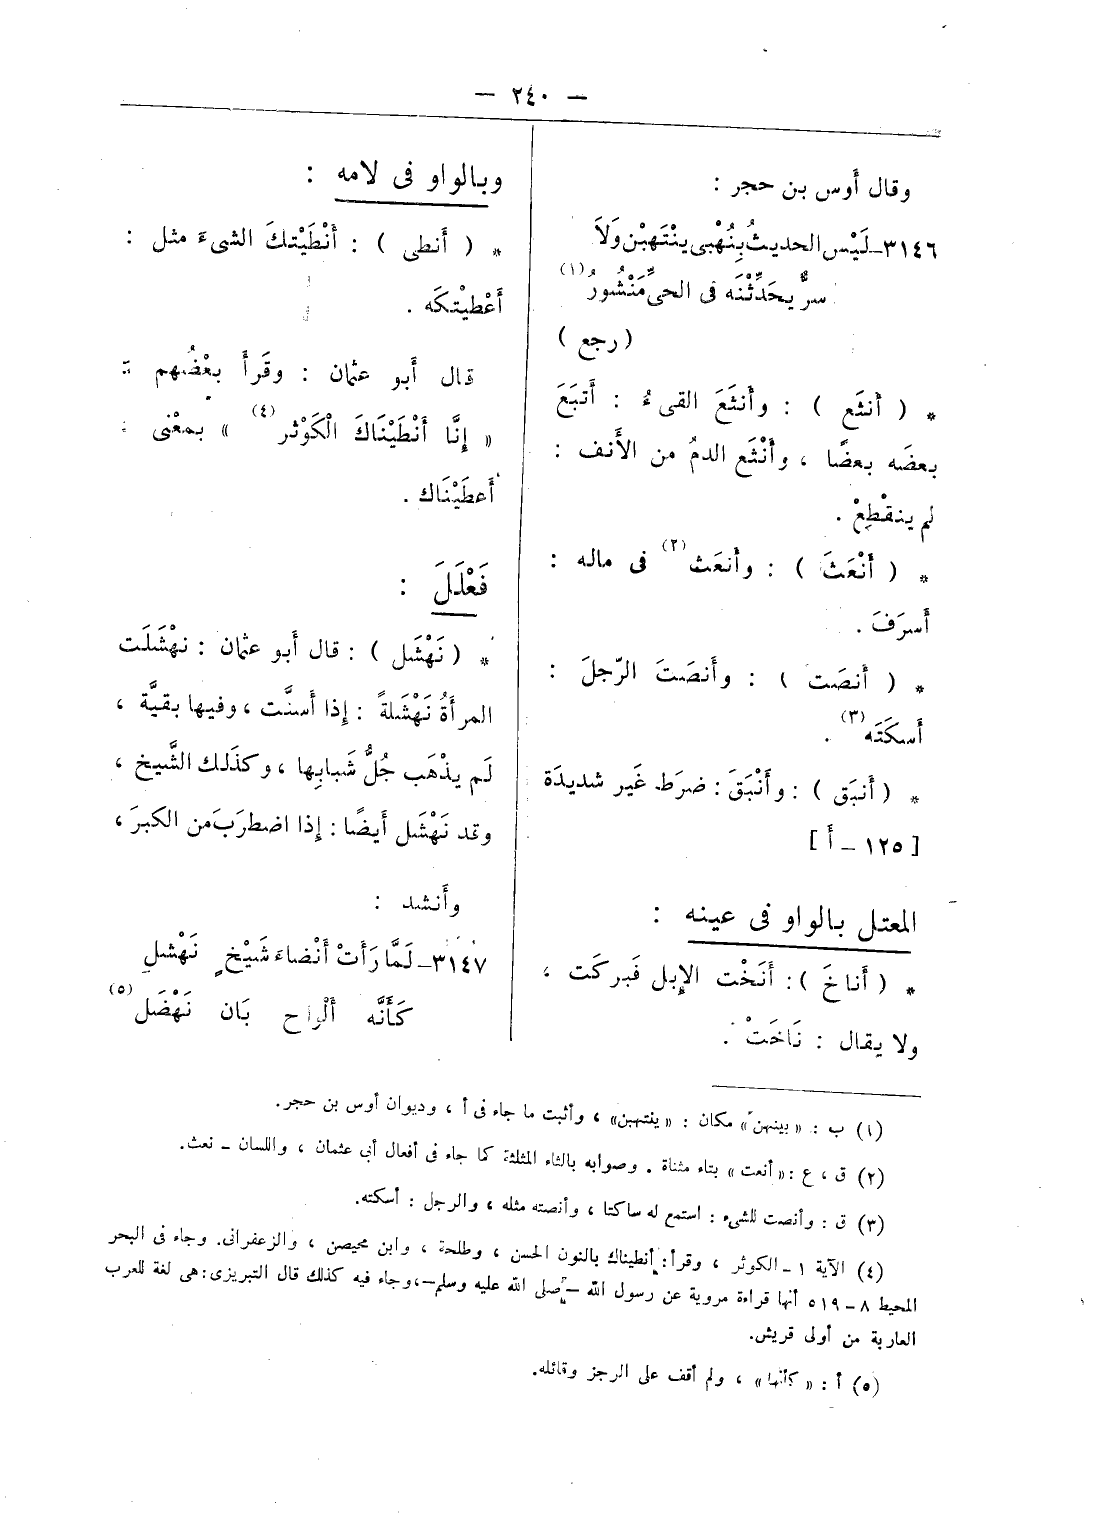 — ٢٤٠ —
وقال أوس بن حجر :
٣١٤٦ـ لَيْس الحديثُ بِنُهْبى ينْتَهبْن وَلَا
سرٌّ يحَدِّثْنَه فى الحىِّ مَنْشُورُ (١)
( رجع )
* ( أنثَع ) : وأنثَعَ القىءُ : أَتبَعَ
بعضَه بعضًا ، وأَنْثَع الدمُ من الأَنف :
لم ينقْطِعْ .
* ( أَنْعَثَ ) : وأَنعَث (٢) فى ماله :
أَسرَفَ .
* ( أَنصَت ) : وأَنصَتَ الرّجلَ :
أَسكَتَه (٣) .
* ( أَنبَق ) : وأَنْبَقَ : ضرَط غَير شديدَة
[ ١٢٥ ـ أ ]
المعتل بالواو فى عينه :
* ( أَناخَ ) : أَنَخْت الإِبل فَبركَت ،
ولا يقال : نَاخَتْ .
وبالواو فى لامه :
* ( أَنطى ) : أَنْطَيْتكَ الشىءَ مثل :
أَعْطيْتكَه .
قال أَبو عثمان : وقَرأَ بعْضُهم :
« إِنَّا أَنْطَيْنَاكَ الْكَوْثر (٤) » بمعْنى :
أَعطَيْنَاك .
فَعْلَلَ :
* ( نَهْشَل ) : قال أَبو عثمان : نهْشَلَت
المرأَةُ نَهْشَلةً : إِذا أَسنَّت ، وفيها بقيَّة ،
لَم يذْهَب جُلُّ شَبابِها ، وكذَلك الشَّيخ ،
وقد نَهْشَل أَيضًا : إِذا اضطرَبَ من الكبرَ ،
وأَنشد :
٣١٤٧ـ لَمَّا رَأَتْ أَنْضاءَ شَيْخٍ نَهْشلِ
كَأَنَّه أَلْواح بَان نَهْضَل (٥)
(١) ب : « بينهن » مكان : « ينتهبن » ، وأثبت ما جاء فى أ ، وديوان أوس بن حجر.
(٢) ق ، ع : « أنعت » بتاء مثناة . وصوابه بالثاء المثلثة كما جاء فى أفعال أبى عثمان ، واللسان ـ نعث.
(٣) ق : وأنصت للشىء : استمع له ساكتا ، وأنصته مثله ، والرجل : أسكته.
(٤) الآية ١ ـ الكوثر ، وقرأ : أنطيناك بالنون الحسن ، وطلحة ، وابن محيصن ، والزعفرانى. وجاء فى البحر
المحيط ٨ ـ ٥١٩ أنها قراءة مروية عن رسول الله ـ صلى الله عليه وسلم ـ ، وجاء فيه كذلك قال التبريزى : هى لغة للعرب
العاربة من أولى قريش.
(٥) أ : « كأنها » ، ولم أقف على الرجز وقائله.